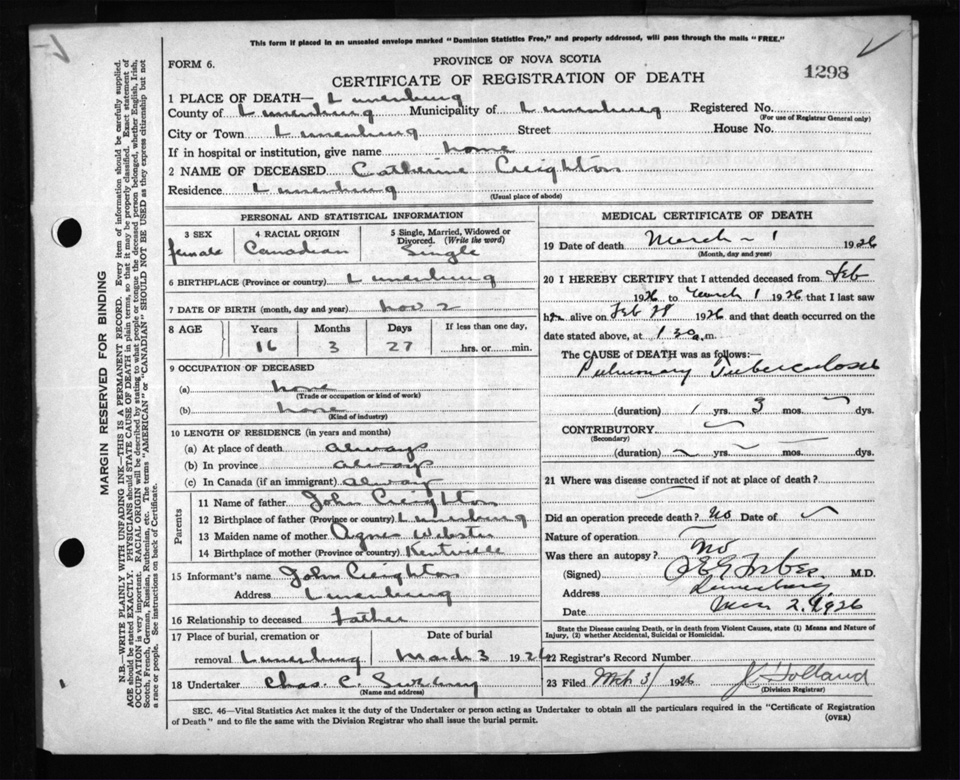 This form if placed in an unsealed envelope marked "Dominion Statistics Free," and properly addressed, will pass through the mails "FREE."
FORM 6.
PROVINCE OF NOVA SCOTIA
CERTIFICATE OF REGISTRATION OF DEATH
1298
1 PLACE OF DEATH— Lunenburg
County of Lunenburg Municipality of Lunenburg Registered No.
(For use of Registrar General only)
City or Town Lunenburg Street House No.
If in hospital or institution, give name home
2 NAME OF DECEASED Catherine Creighton
Residence Lunenburg
(Usual place of abode)
PERSONAL AND STATISTICAL INFORMATION
3 SEX 4 RACIAL ORIGIN 5 Single, Married, Widowed or Divorced. (Write the word)
female Canadian Single
6 BIRTHPLACE (Province or country) Lunenburg
7 DATE OF BIRTH (month, day and year) Nov 2
8 AGE Years Months Days If less than one day,
16 3 27 hrs. or min.
9 OCCUPATION OF DECEASED
(a) none
(Trade or occupation or kind of work)
(b) none
(Kind of industry)
10 LENGTH OF RESIDENCE (in years and months)
(a) At place of death always
(b) In province always
(c) In Canada (if an immigrant) always
Parents
11 Name of father John Creighton
12 Birthplace of father (Province or country) Lunenburg
13 Maiden name of mother Agnes Webster
14 Birthplace of mother (Province or country) Kentville
15 Informant's name John Creighton
Address Lunenburg
16 Relationship to deceased Father
17 Place of burial, cremation or Date of burial
removal Lunenburg March 3 1926
18 Undertaker Chas. C.
(Name and address)
MEDICAL CERTIFICATE OF DEATH
19 Date of death March - 1 1926
(Month, day and year)
20 I HEREBY CERTIFY that I attended deceased from Feb
1926 to March 1 1926 that I last saw
her alive on Feb 28 1926 and that death occurred on the
date stated above, at 1 30 a.m.
The CAUSE of DEATH was as follows:—
Pulmonary Tuberculosis
(duration) 1 yrs. 3 mos. dys.
CONTRIBUTORY
(Secondary)
(duration) yrs. mos. dys.
21 Where was disease contracted if not at place of death?
Did an operation precede death? No Date of
Nature of operation
Was there an autopsy? No
(Signed) Forbes M.D.
Address Lunenburg
Date Mar 2, 1926
State the Disease causing Death, or in death from Violent Causes, state (1) Means and Nature of
Injury, (2) whether Accidental, Suicidal or Homicidal.
22 Registrar's Record Number
23 Filed Mch 3/ 1926 J. Holland
(Division Registrar)
SEC. 46—Vital Statistics Act makes it the duty of the Undertaker or person acting as Undertaker to obtain all the particulars required in the "Certificate of Registration
of Death" and to file the same with the Division Registrar who shall issue the burial permit.
(OVER)
MARGIN RESERVED FOR BINDING
N.B.—WRITE PLAINLY WITH UNFADING INK—THIS IS A PERMANENT RECORD. Every item of information should be carefully supplied.
AGE should be stated EXACTLY. PHYSICIANS should STATE CAUSE OF DEATH in plain terms, so that it may be properly classified. Exact statement of
OCCUPATION is very important. RACIAL ORIGIN will be described by stating to what people or tongue the deceased person belonged, whether English, Irish,
Scotch, French, German, Russian, Ruthenian, etc. The terms "AMERICAN" or "CANADIAN" SHOULD NOT BE USED as they express citizenship but not
a race or people. See instructions on back of Certificate.